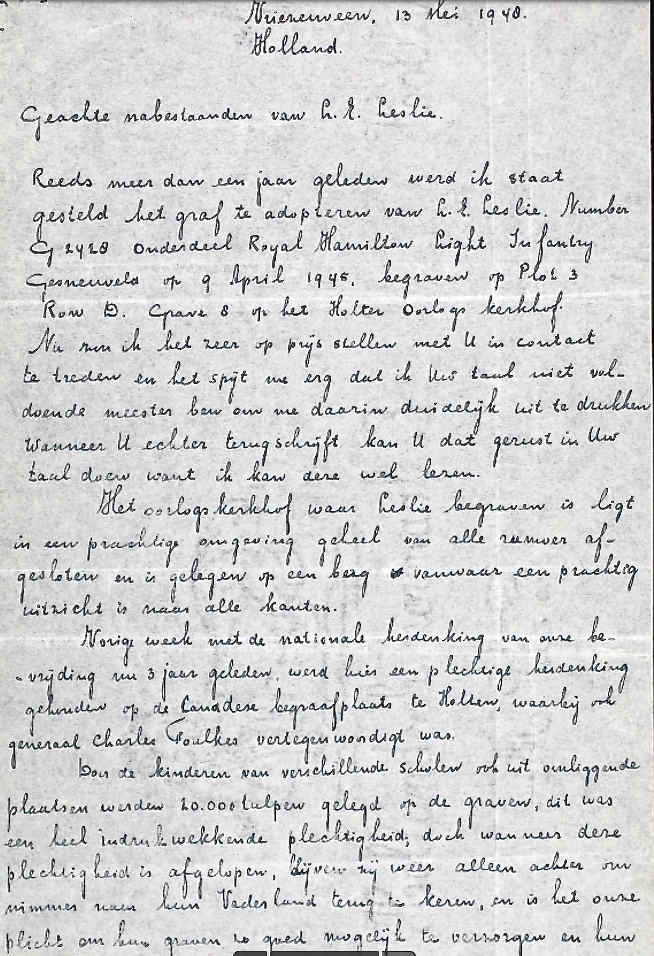 Vriezenveen, 13 Mei 1948.
Holland.
Geachte nabestaanden van L. E. Leslie.
Reeds meer dan een jaar geleden werd ik staat
gesteld het graf te adopteren van L. E. Leslie. Number
G 2428 onderdeel Royal Hamilton Light Infantry
Gesneuveld op 9 April 1945, begraven op Plot 3
Row D. Grave 8 op het Holter Oorlogs kerkhof.
Nu zou ik het zeer op prijs stellen met U in contact
te treden en het spijt me erg dat ik Uw taal niet vol-
doende meester ben om me daarin duidelijk uit te drukken
Wanneer U echter terugschrijft kan U dat gerust in Uw
taal doen want ik kan deze wel lezen.
Het oorlogskerkhof waar Leslie begraven is ligt
in een prachtige omgeving geheel van alle rumoer af-
gesloten en is gelegen op een berg vanwaar een prachtig
uitzicht is naar alle kanten.
Vorige week met de nationale herdenking van onze be-
-vrijding nu 3 jaar geleden, werd hier een plechtige herdenking
gehouden op de Canadese begraafplaats te Holten, waarbij ook
generaal Charles Foulkes vertegenwoordigt was.
Door de kinderen van verschillende scholen ook uit omliggende
plaatsen werden 20.000 tulpen gelegd op de graven, dit was
een heel indrukwekkende plechtigheid; doch wanneer deze
plechtigheid is afgelopen, blijven zij weer alleen achter om
nimmer naar hun Vaderland terug te keren, en is het onze
plicht om hun graven zo goed mogelijk te verzorgen en hun